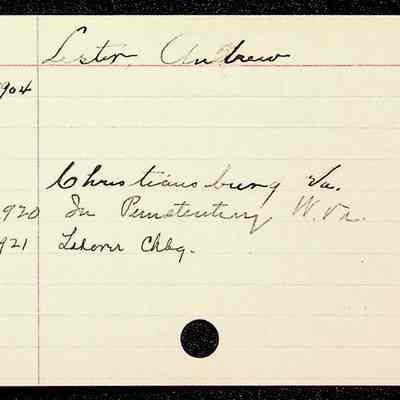 Lester, Andrew
904
Christiansburg Va.
920 In Penetentiary, W. Va.
921 Laborer Chbg.